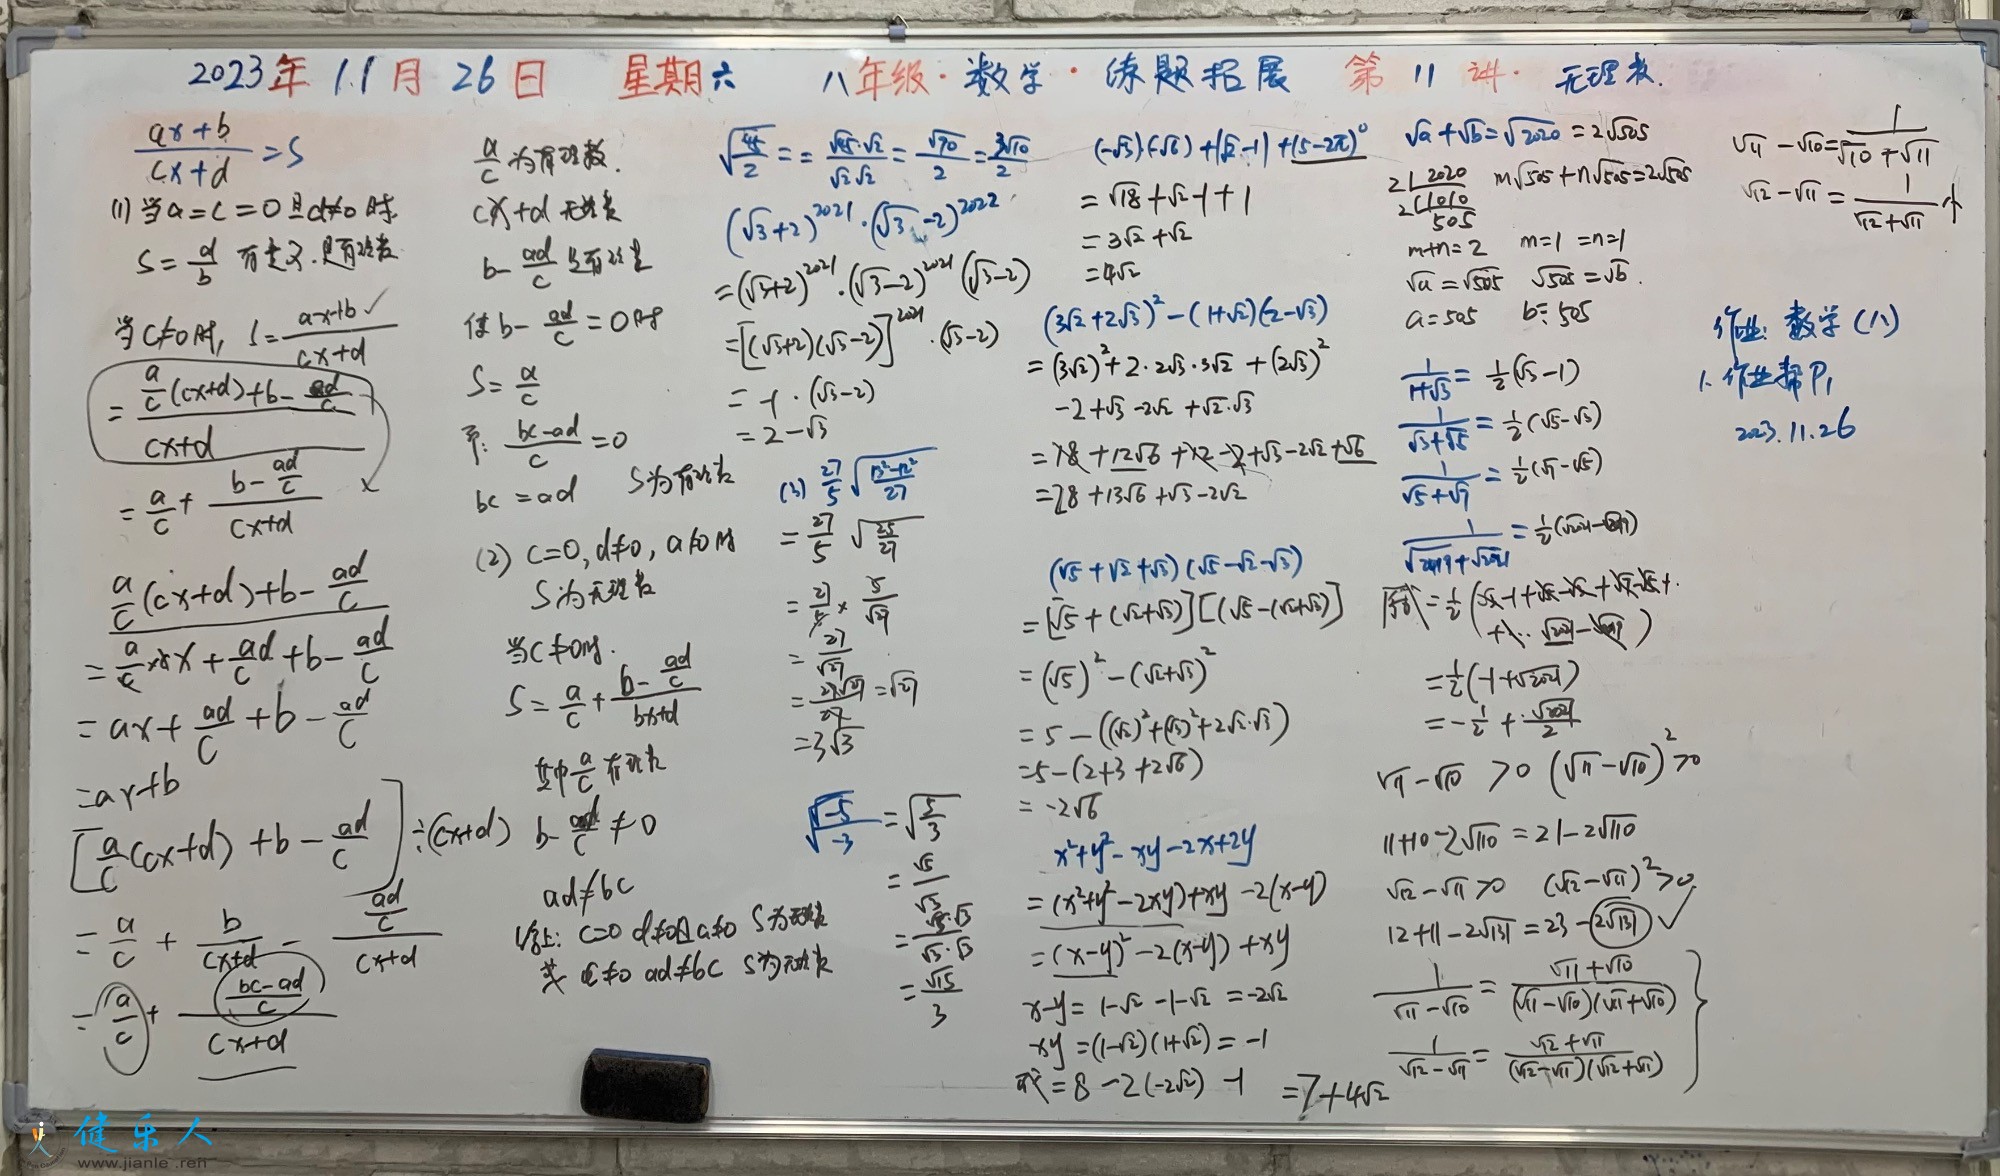 2023年 11月 26日 星期六 八年级·数学·练题拓展 第 11 讲· 无理数.
(ax+b)/(cx+d) = S
(1) 当a=c=0且d≠0时
S = d/b 有意义.是有理数
当c≠0时, S = (ax+b)/(cx+d) ✓
= (a/c(cx+d)+b-ad/c)/(cx+d)
= a/c + (b-ad/c)/(cx+d)
a/c(cx+d)+b-ad/c
= a/c·cx + ad/c + b - ad/c
= ax + ad/c + b - ad/c
= ax+b
[a/c(cx+d) + b - ad/c] ÷(cx+d)
= a/c + b/(cx+d) - (ad/c)/(cx+d)
= a/c + ((bc-ad)/c)/(cx+d)
a/c 为有理数.
cx+d 无理数
b - ad/c 是有理数
使 b - ad/c = 0时
S = a/c
即: (bc-ad)/c = 0
bc = ad S为有理数
(2) c=0, d≠0, a≠0时
S为无理数
当c≠0时.
S = a/c + (b-ad/c)/(bx+d)
其中 a/c 有理数
b - ad/c ≠ 0
ad≠bc
综上: c=0 d≠0且a≠0 S为无理数
或 c≠0 ad≠bc S为无理数
√(45/2) = = (√45·√2)/(√2√2) = √90/2 = 3√10/2
(√3+2)^2021·(√3-2)^2022
=(√3+2)^2021·(√3-2)^2021(√3-2)
=[(√3+2)(√3-2)]^2021·(√3-2)
= -1·(√3-2)
= 2-√3
(3) 27/5 √((13²-12²)/27)
= 27/5 √(25/27)
= 27/5 × 5/√27
= 27/√27
= 27√27/27 = √27
= 3√3
√(-5/-3) = √(5/3)
= √5/√3
= (√5·√3)/(√3·√3)
= √15/3
(-√3)(-√6)+|√2-1|+(5-2π)^0
= √18+√2-1+1
= 3√2+√2
= 4√2
(3√2+2√3)²-(1+√2)(2-√3)
= (3√2)²+2·2√3·3√2+(2√3)²
-2+√3-2√2+√2·√3
= 18+12√6+12-2+√3-2√2+√6
= 28+13√6+√3-2√2
(√5+√2+√3)(√5-√2-√3)
= [√5+(√2+√3)][(√5-(√2+√3)]
= (√5)²-(√2+√3)²
= 5-((√2)²+(√3)²+2√2·√3)
= 5-(2+3+2√6)
= -2√6
x²+y²-xy-2x+2y
= (x²+y²-2xy)+xy-2(x-y)
= (x-y)²-2(x-y)+xy
x-y = 1-√2-1-√2 = -2√2
xy = (1-√2)(1+√2) = -1
式 = 8-2(-2√2)-1 = 7+4√2
√a+√b=√2020=2√505
2|2020 m√505+n√505=2√505
2|1010
505
m+n=2 m=1 =n=1
√a=√505 √505=√b.
a=505 b=505
1/(1+√3) = 1/2(√3-1)
1/(√3+√5) = 1/2(√5-√3)
1/(√5+√7) = 1/2(√7-√5)
1/(√2019+√2021) = 1/2(√2021-√2019)
原式 = 1/2(√3-1+√5-√3+√7-√5+·
+··· √2021-√2019)
= 1/2(-1+√2021)
= -1/2 + √2021/2
√11-√10 >0 (√11-√10)²>0
11+10-2√110 = 21-2√110
√12-√11>0 (√12-√11)²>0
12+11-2√131 = 23-2√131 ✓
1/(√11-√10) = (√11+√10)/((√11-√10)(√11+√10))
1/(√12-√11) = (√12+√11)/((√12-√11)(√12+√11))
√11-√10 = 1/(√10+√11)
√12-√11 = 1/(√12+√11) 小
作业: 数学(八)
1. 作业帮P1
2023.11.26
健乐人
www.jianle.ren